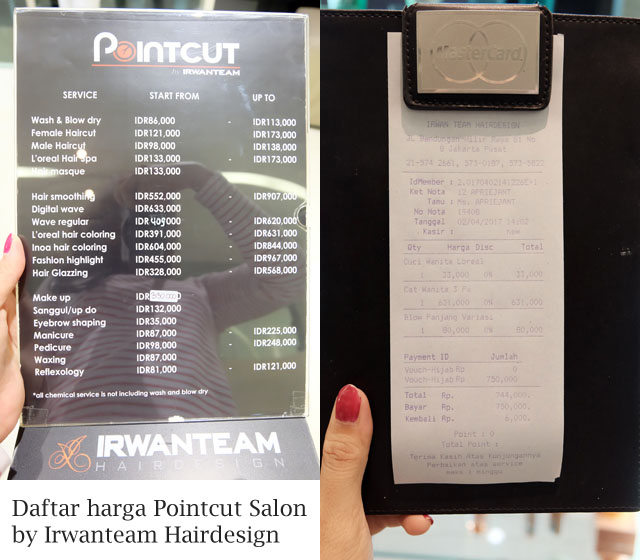 POINTCUT
by IRWANTEAM
SERVICE START FROM UP TO
Wash & Blow dry IDR86,000 - IDR113,000
Female Haircut IDR121,000 - IDR173,000
Male Haircut IDR98,000 - IDR138,000
L'oreal Hair Spa IDR133,000 - IDR173,000
Hair masque IDR133,000
Hair smoothing IDR552,000 - IDR907,000
Digital wave IDR633,000
Wave regular IDR409,000 - IDR620,000
L'oreal hair coloring IDR391,000 - IDR631,000
Inoa hair coloring IDR604,000 - IDR844,000
Fashion highlight IDR455,000 - IDR967,000
Hair Glazzing IDR328,000 - IDR568,000
Make up IDR
Sanggul/up do IDR132,000
Eyebrow shaping IDR35,000
Manicure IDR87,000 - IDR225,000
Pedicure IDR98,000 - IDR248,000
Waxing IDR87,000
Reflexology IDR81,000 - IDR121,000
*all chemical service is not including wash and blow dry
IRWANTEAM
HAIRDESIGN
Daftar harga Pointcut Salon
by Irwanteam Hairdesign
MasterCard
IRWAN TEAM HAIRDESIGN
Jakarta Pusat
IdMember :
Ket Nota :
Tamu : Ms.
No Nota : 19408
Tanggal 02/04/2017 14:02
Kasir : new
Qty Harga Disc Total
Cuci Wanita Loreal
1 33,000 0% 33,000
Cat Wanita
1 631,000 0% 631,000
Blow Panjang Variasi
1 80,000 0% 80,000
Payment ID Jumlah
Vouch-Hijab Rp 0
Vouch-Hijab Rp 750,000
Total Rp. 744,000.
Bayar Rp. 750,000.
Kembali Rp. 6,000.
Point : 0
Total Point :
Terima Kasih Atas Kunjungannya
Perbaikan atas service
maks 1 minggu